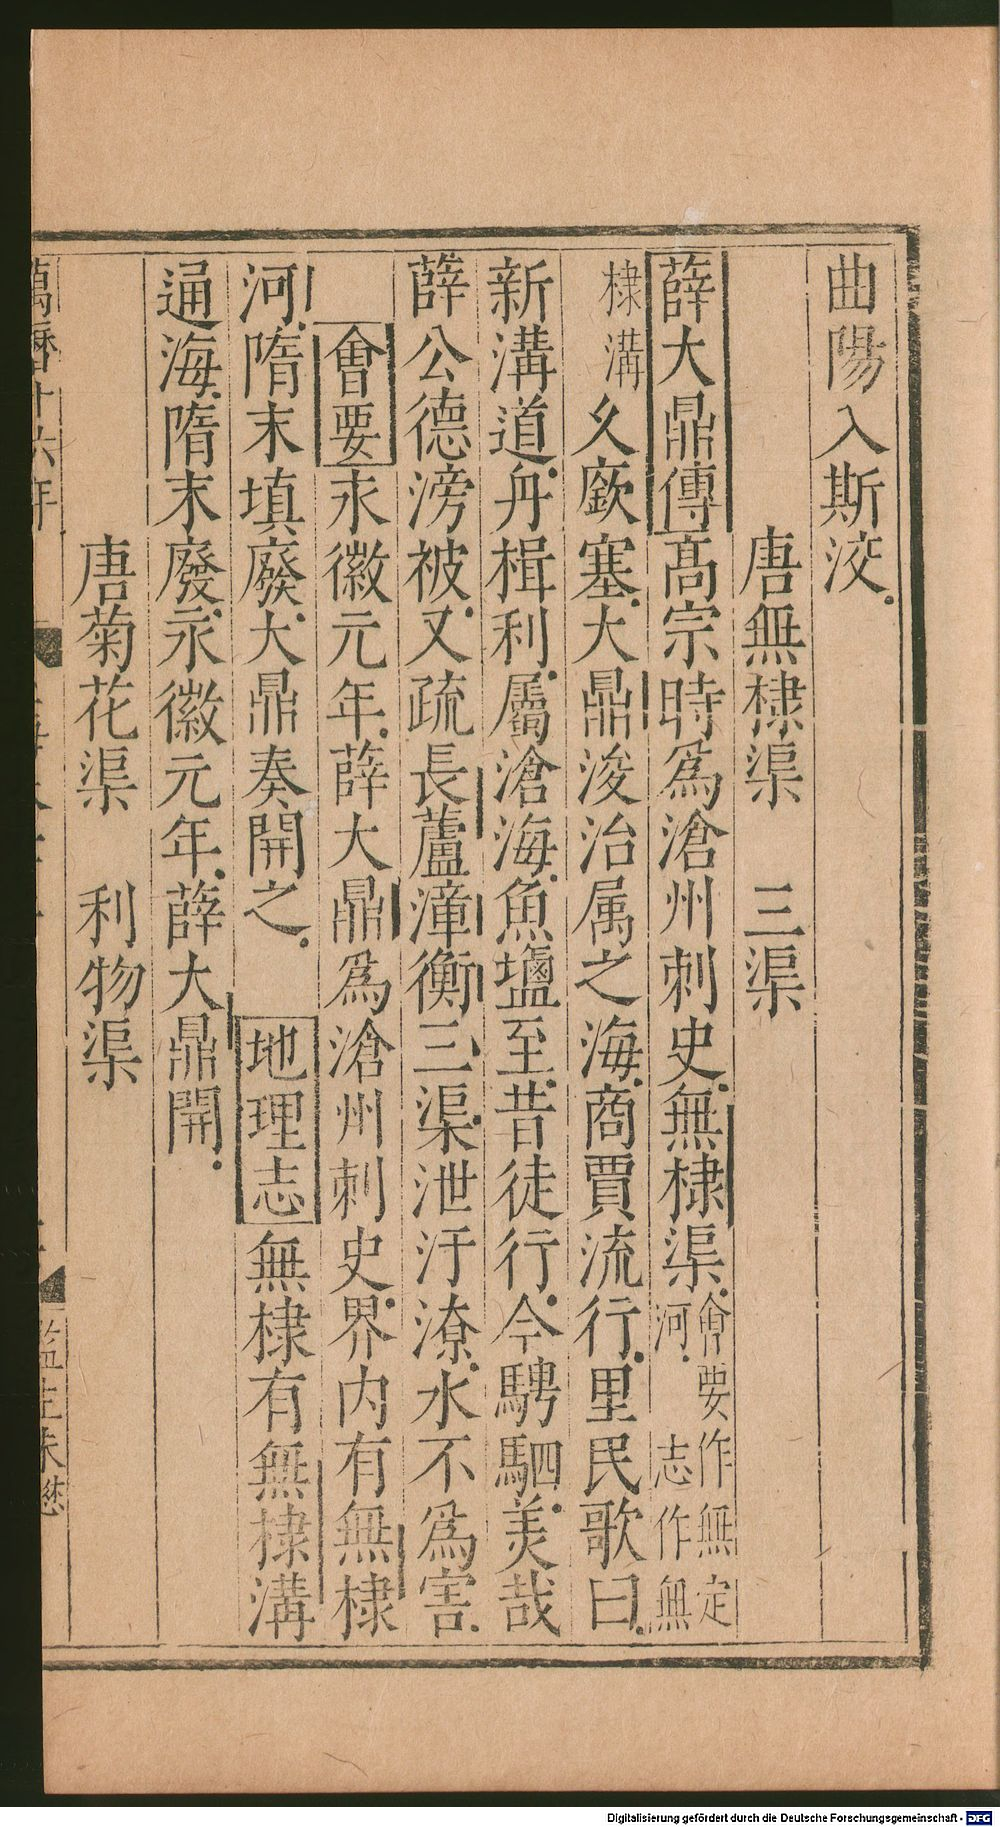 曲陽入斯洨
唐無棣渠 三渠
薛大鼎傳髙宗時爲滄州刺史無棣渠㑹要作無定河志作無
棣溝久廞塞大鼎浚治属之海商賈流行里民歌曰
新溝道舟楫利屬滄海魚鹽至昔徒行今騁駟美哉
薛公德滂被又疏長蘆漳衡三渠泄汙潦水不爲害
㑹要永徽元年薛大鼎爲滄州刺史界内有無棣
河隋末填廢大鼎奏開之 地理志無棣有無棣溝
通海隋末廢永徽元年薛大鼎開
唐菊花渠 利物渠
萬曆十六年
監生朱懋
Digitalisierung gefördert durch die Deutsche Forschungsgemeinschaft - DFG